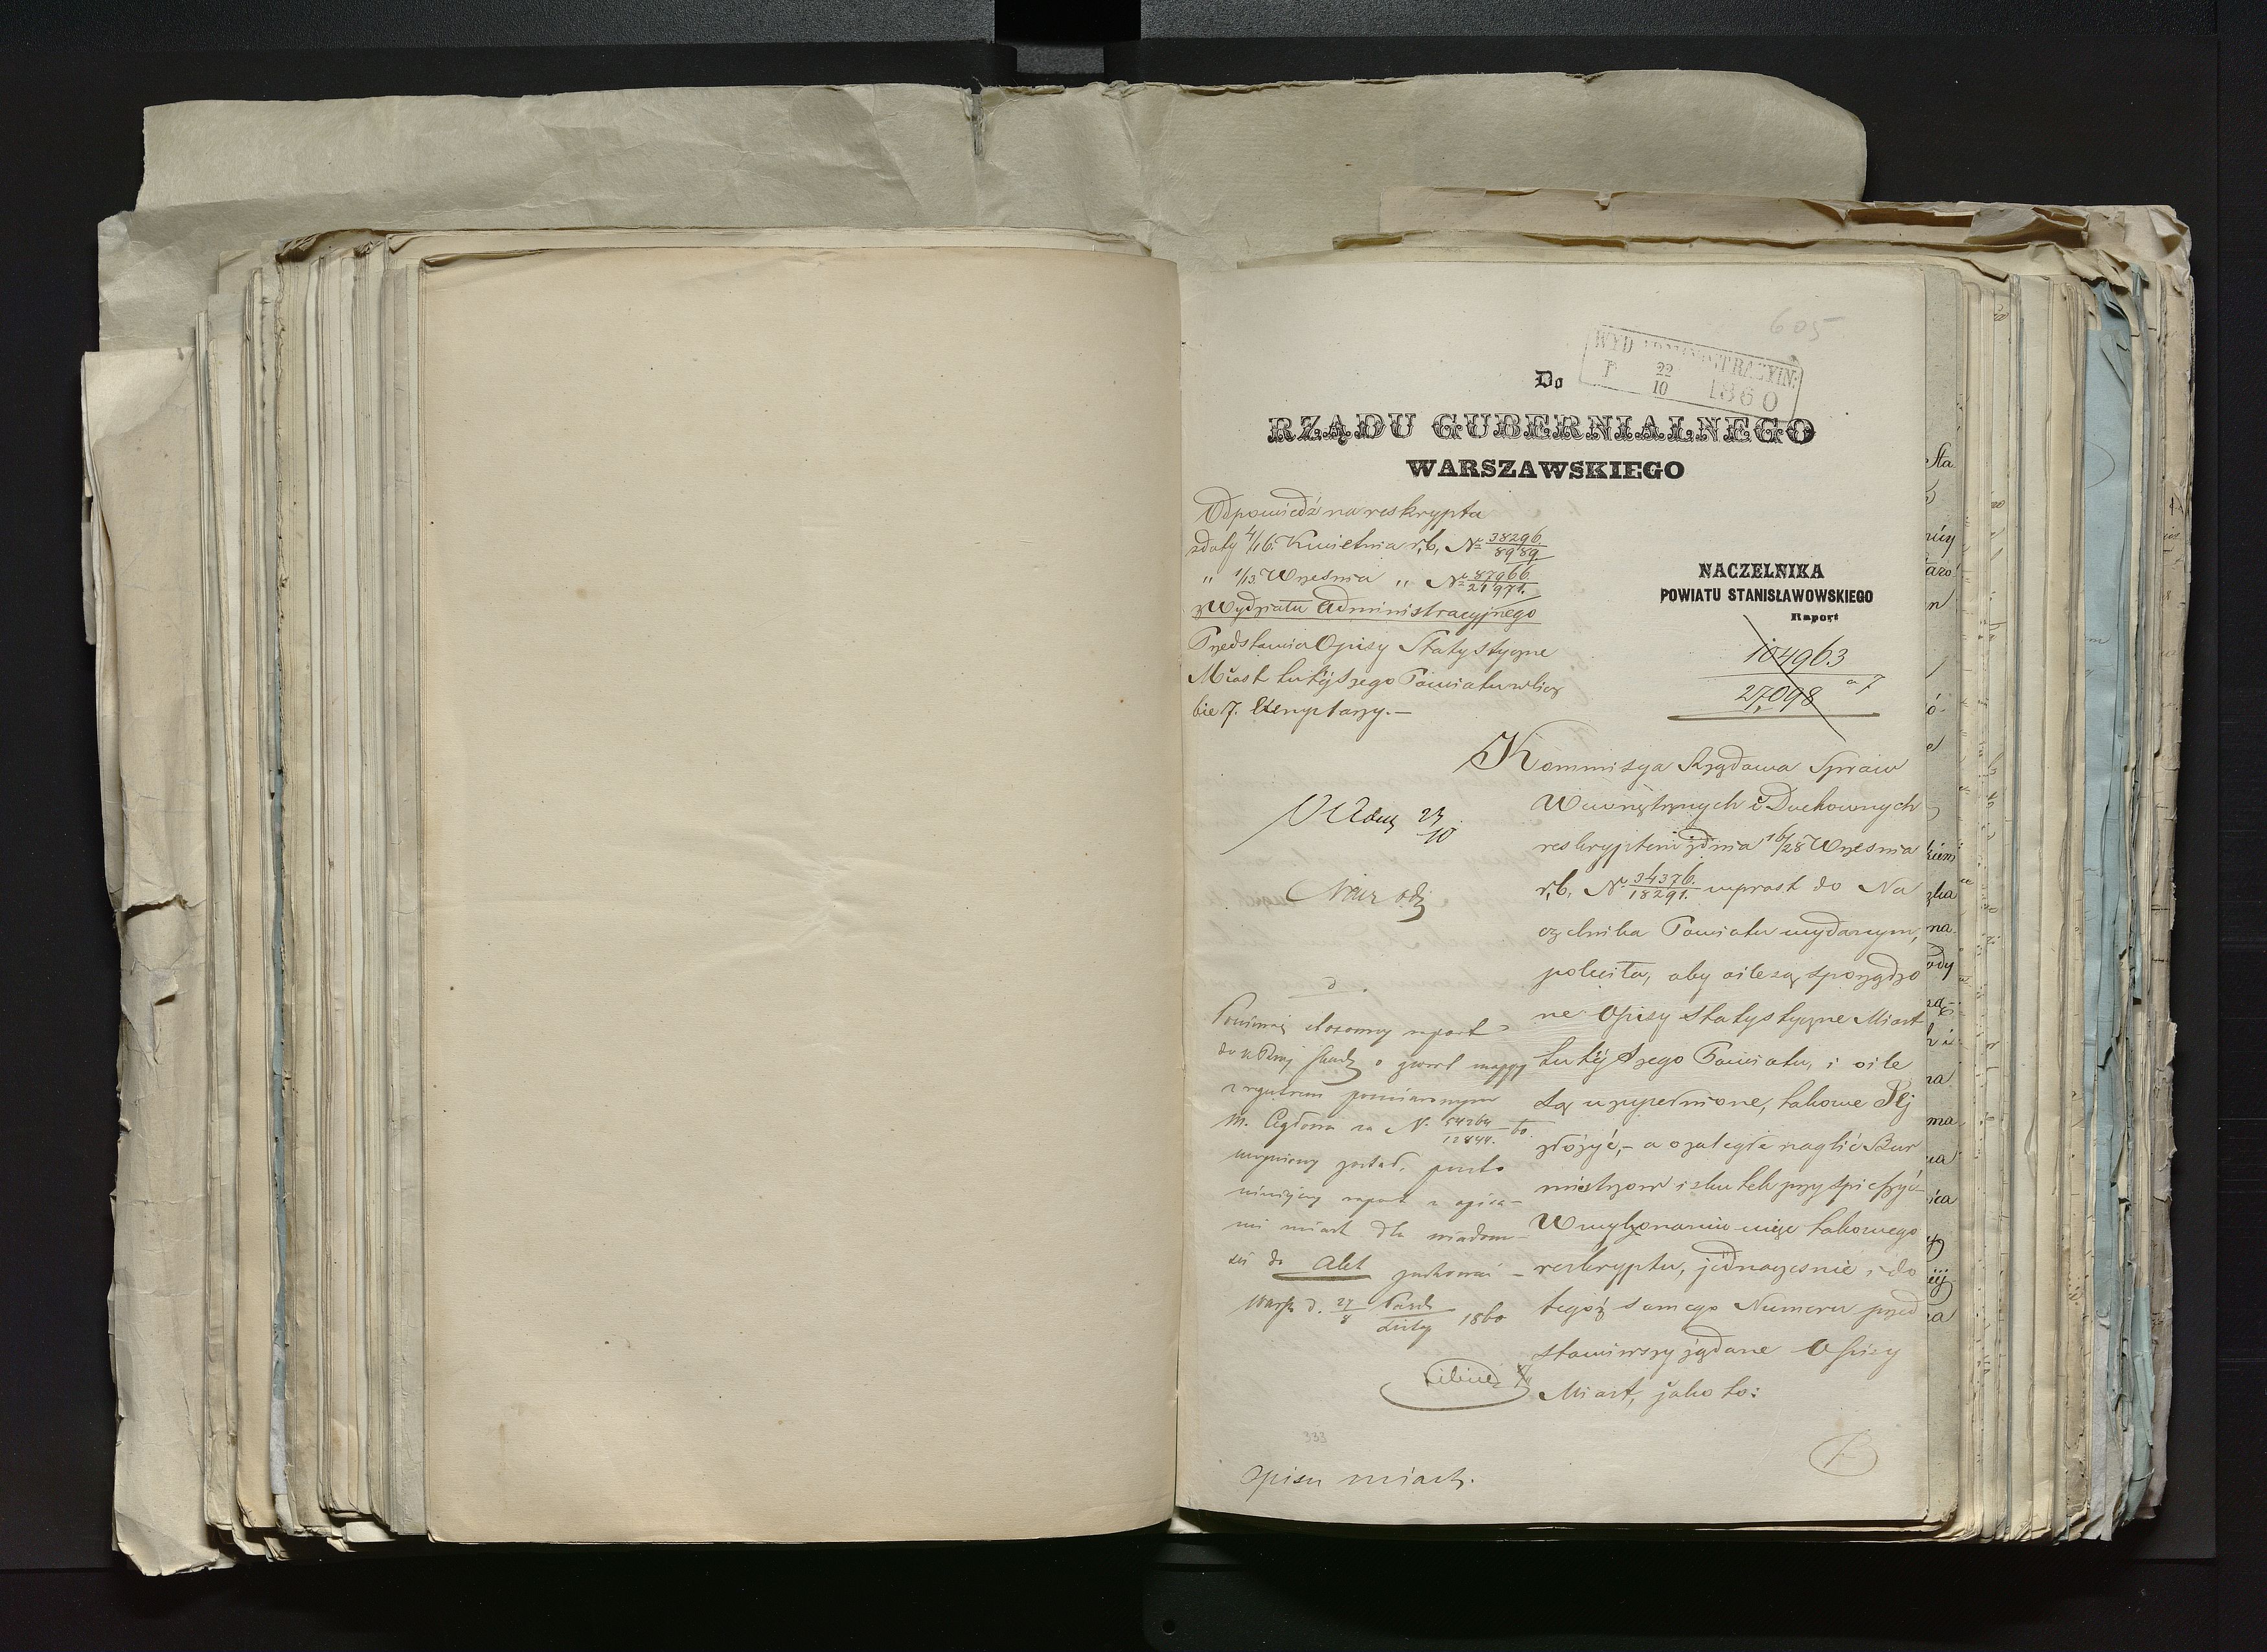 605
WYD ADMINISTRACYJN:
22
10 1860
Do
RZĄDU GUBERNIALNEGO
WARSZAWSKIEGO
Odpowiedź na reskrypta
z daty 4/16. Kwietnia r, b, № 38296./8989.
" 1/13. Września " № 87966./21971.
z Wydziału Administracyjnego
Przedstawia Opisy Statystyczne
Miast tutejszego Powiatu w licz
bie 7. Exemplarzy.—
NACZELNIKA
POWIATU STANISŁAWOWSKIEGO
Raport
104963
27,098 a 7
Kommisya Rządowa Spraw
Wewnętrznych i Duchownych
reskryptem z dnia 16/28 Września
r, b, № 34376./18291. wprost do Na
czelnika Powiatu wydanym,
poleciła, aby o ile są sporządzo
ne Opisy statystyczne Miast
tutejszego Powiatu, i o ile
są uzupełnione, takowe Jej
złożyć,- a o zaległe naglić Bur
mistrzów i skutek przyspieszyć
W wykonaniu więc takowego
reskryptu, jednocześnie i do
tegoż samego Numeru przed
stawiwszy żądane Opisy
Miast, jako to:
23/10
Ponieważ raport
do
z rejestrem pomiarowym
m. Cegłowa za N. 54264/12844. 60.
uczyniony został, przeto
niniejszy raport z opisa-
mi miast dla wiadomo-
ści do Akt zachować -
Warsz d. 27/8 Paźdz/Listop 1860
333
Opisu miast.